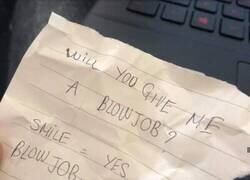 WILL YOU GIVE ME
A BLOWJOB?
SMILE = YES
BLOWJOB